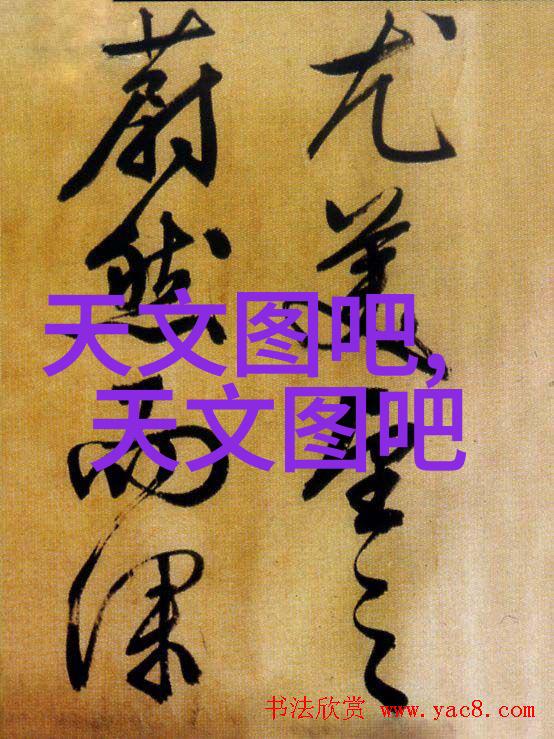 尤美望之
蔚然而深
天文图吧,
天文图吧
书法欣赏 www.yac8.com